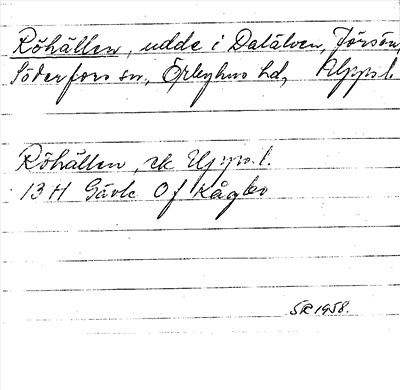 Röhällen, udde i Dalälven, Jörsön,
Söderfors sn, Örbyhus hd, Uppl.
Röhällen, ek Uppl.
13 H Gävle 0f Kågbo
SR 1958.